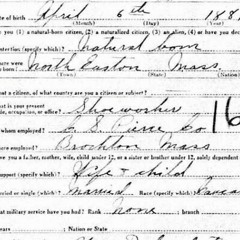 of birth April 6th 188
(Month) (Day) (Year)
you (1) a natural-born citizen, (2) a naturalized citizen, (3) an alien, (4) or have you decl
(specify which)? Natural born
were
North Easton Mass.
(Town) (State) (Nation)
a citizen, of what country are you a citizen or subject?
is your present
occupation, or office? Shoeworker
16
whom employed? E. S. Pierce Co
employed? Brockton Mass
you a father, mother, wife, child under 12, or a sister or brother under 12, solely dependent
support (specify which)? Wife + child
or single (which)? Married Race (specify which)? Caucas
military service have you had? Rank None ; branch